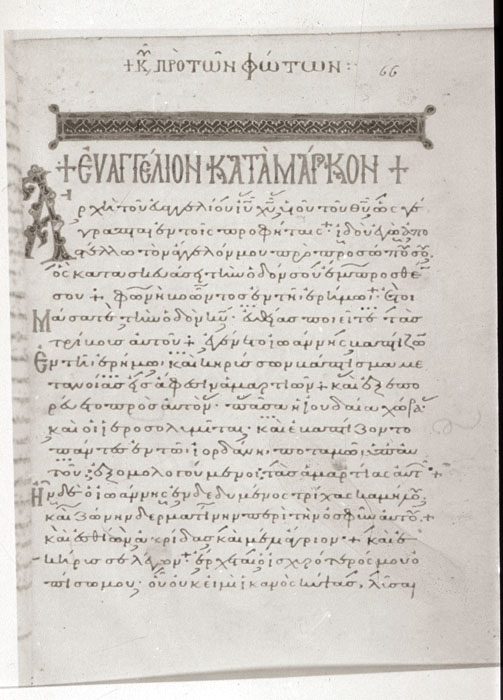 + Κ͞Υ ΠΡῸ ΤΩ͂Ν ΦΏΤΩΝ :
66
+ ἘΥΑΓΓΈΛΙΟΝ ΚΑΤᾺ ΜΆΡΚΟΝ +
Ἀρχὴ τοῦ ἐυαγγελίου ἰ͞υ χ͞υ υἱοῦ τοῦ θ͞υ· ὡς γέ
γραπται ἐν τοῖς προφήταις· ἰδοὺ ἐγὼ ἀπο
στέλλω τὸν ἄγγελόν μου πρὸ προσώπου σου
ὃς κατασκευάσει τὴν ὁδόν σου ἔμπροσθέ
σου + φωνὴ βοῶντος ἐν τῆ ἐρήμω· ἑτοι
Μάσατε τὴν ὁδὸν κ͞υ· ἐυθείας ποιεῖτε τὰς
τρίβους αὐτοῦ + ἐγένετο ἰωάννης βαπτίζων
Ἐν τῆ ἐρήμω· καὶ κηρύσσων βάπτισμα με
τανοίας εἰς ἄφεσιν ἁμαρτιῶν + καὶ ἐξεπο
ρεύετο πρὸς αὐτὸν· πᾶσα ἡ ἰουδαία χώρα·
καὶ οἱ ἱεροσολυμῖται· καὶ ἐβαπτίζοντο
πάντες ἐν τῶ ἰορδάνη ποταμῶ ὑπ' αὐ
τοῦ· ἐξομολογούμενοι τὰς ἁμαρτίας αὐτῶν +
Ἦν δὲ ὁ ἰωάννης ἐνδεδυμένος τρίχας καμήλου·
καὶ ζώνην δερματίνην περὶ τὴν ὀσφὺν αὐτοῦ· +
καὶ ἐσθίων ἀκρίδας καὶ μέλι ἄγριον + καὶ ἐ
κήρυσσε λέγων + ἔρχεται ὁ ἰσχυρότερός μου ὀ
πίσω μου· οὗ οὐκ εἰμὶ ἱκανὸς κύψας, λῦσαι